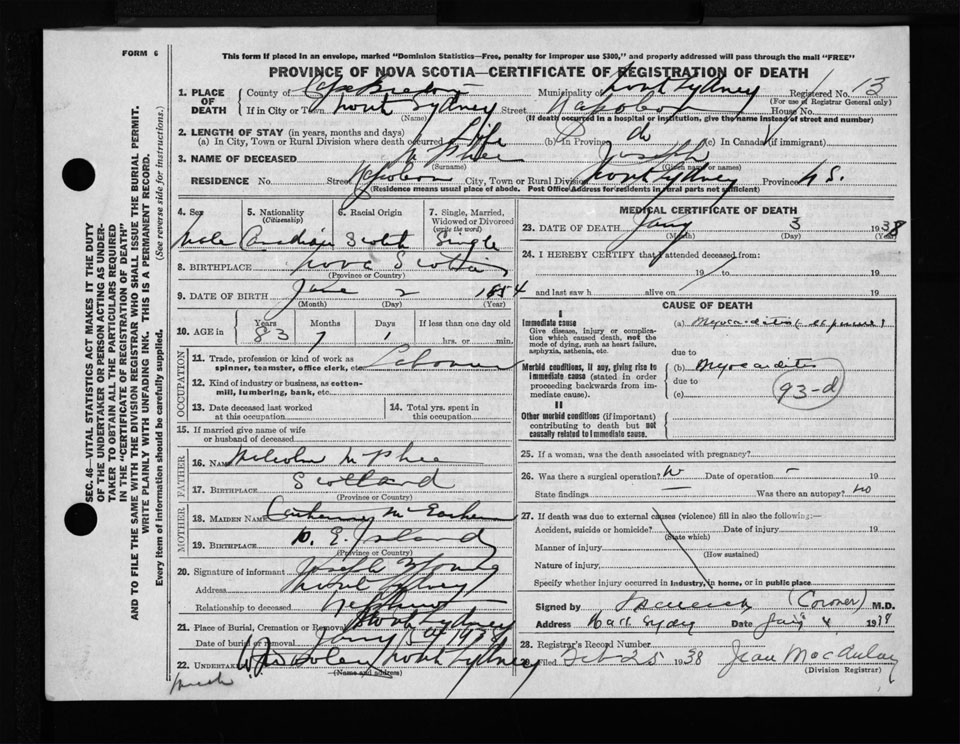 FORM 6
This form if placed in an envelope, marked "Dominion Statistics—Free, penalty for improper use $300," and properly addressed will pass through the mail "FREE"
PROVINCE OF NOVA SCOTIA—CERTIFICATE OF REGISTRATION OF DEATH
1. PLACE OF DEATH
County of Cape Breton Municipality of North Sydney Registered No. 3
(For use of Registrar General only)
If in City or Town North Sydney Street Napoleon House No.
(Name) (If death occurred in a hospital or institution, give the name instead of street and number)
2. LENGTH OF STAY (in years, months and days)
(a) In City, Town or Rural Division where death occurred Life (b) In Province do (c) In Canada (if immigrant)
3. NAME OF DECEASED McPhee Joseph
(Surname) (Given name or names)
RESIDENCE No. Street Napoleon City, Town or Rural Division North Sydney Province N S.
(Residence means usual place of abode. Post Office Address for residents in rural parts not sufficient)
4. Sex
Male
5. Nationality
(Citizenship)
Canadian
6. Racial Origin
Scotch
7. Single, Married, Widowed or Divorced
(write the word)
Single
8. BIRTHPLACE Nova Scotia
(Province or Country)
9. DATE OF BIRTH June 2 1854
(Month) (Day) (Year)
10. AGE in
Years Months Days If less than one day old
83 7 1 hrs. or min.
OCCUPATION
11. Trade, profession or kind of work as spinner, teamster, office clerk, etc. Labourer
12. Kind of industry or business, as cotton-mill, lumbering, bank, etc.
13. Date deceased last worked at this occupation
14. Total yrs. spent in this occupation
15. If married give name of wife or husband of deceased
FATHER
16. Name Malcolm McPhee
17. BIRTHPLACE Scotland
(Province or Country)
MOTHER
18. MAIDEN NAME
19. BIRTHPLACE P. E. Island
(Province or Country)
20. Signature of informant Joseph Young
Address North Sydney
Relationship to deceased Nephew
21. Place of Burial, Cremation or Removal North Sydney
Date of burial or removal
22. UNDERTAKER North Sydney
(Name and address)
MEDICAL CERTIFICATE OF DEATH
23. DATE OF DEATH Jany 3 1938
(Month) (Day) (Year)
24. I HEREBY CERTIFY that I attended deceased from:
19 to 19
and last saw h alive on 19
CAUSE OF DEATH
I
Immediate cause
Give disease, injury or complication which caused death, not the mode of dying, such as heart failure, asphyxia, asthenia, etc.
(a) Myocarditis
due to
Morbid conditions, if any, giving rise to immediate cause (stated in order proceeding backwards from immediate cause).
(b) Myocarditis
due to
(c)
93-d
II
Other morbid conditions (if important) contributing to death but not causally related to immediate cause.
25. If a woman, was the death associated with pregnancy?
26. Was there a surgical operation? No Date of operation 19
State findings — Was there an autopsy? no
27. If death was due to external causes (violence) fill in also the following:—
Accident, suicide or homicide? Date of injury 19
(State which)
Manner of injury
(How sustained)
Nature of injury
Specify whether injury occurred in industry, in home, or in public place
Signed by (Coroner) M.D.
Address North Sydney Date Jany 4 1938
28. Registrar's Record Number
29. Filed Feb 25 1938 Jean MacAulay
(Division Registrar)
SEC. 46—VITAL STATISTICS ACT MAKES IT THE DUTY
OF THE UNDERTAKER OR PERSON ACTING AS UNDER-
TAKER TO OBTAIN ALL THE PARTICULARS REQUIRED
IN THE "CERTIFICATE OF REGISTRATION OF DEATH"
AND TO FILE THE SAME WITH THE DIVISION REGISTRAR WHO SHALL ISSUE THE BURIAL PERMIT.
WRITE PLAINLY WITH UNFADING INK. THIS IS A PERMANENT RECORD.
Every item of information should be carefully supplied. (See reverse side for instructions.)